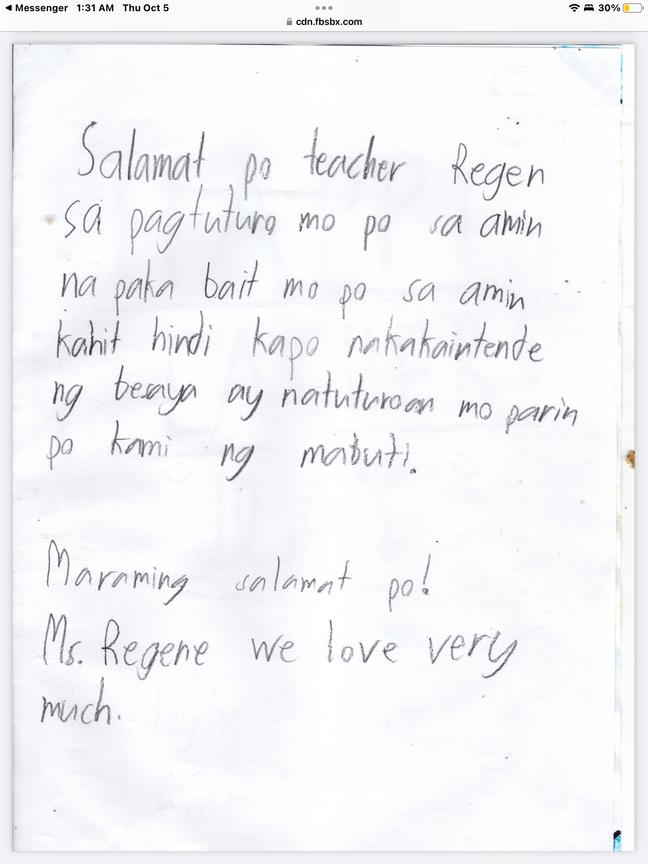 Messenger 1:31 AM Thu Oct 5 30%
cdn.fbsbx.com
Salamat po teacher Regen
sa pagtuturo mo po sa amin
na paka bait mo po sa amin
kahit hindi kapo nakakaintende
ng besaya ay natuturoan mo parin
po kami ng mabuti.
Maraming salamat po!
Ms. Regene we love very
much.